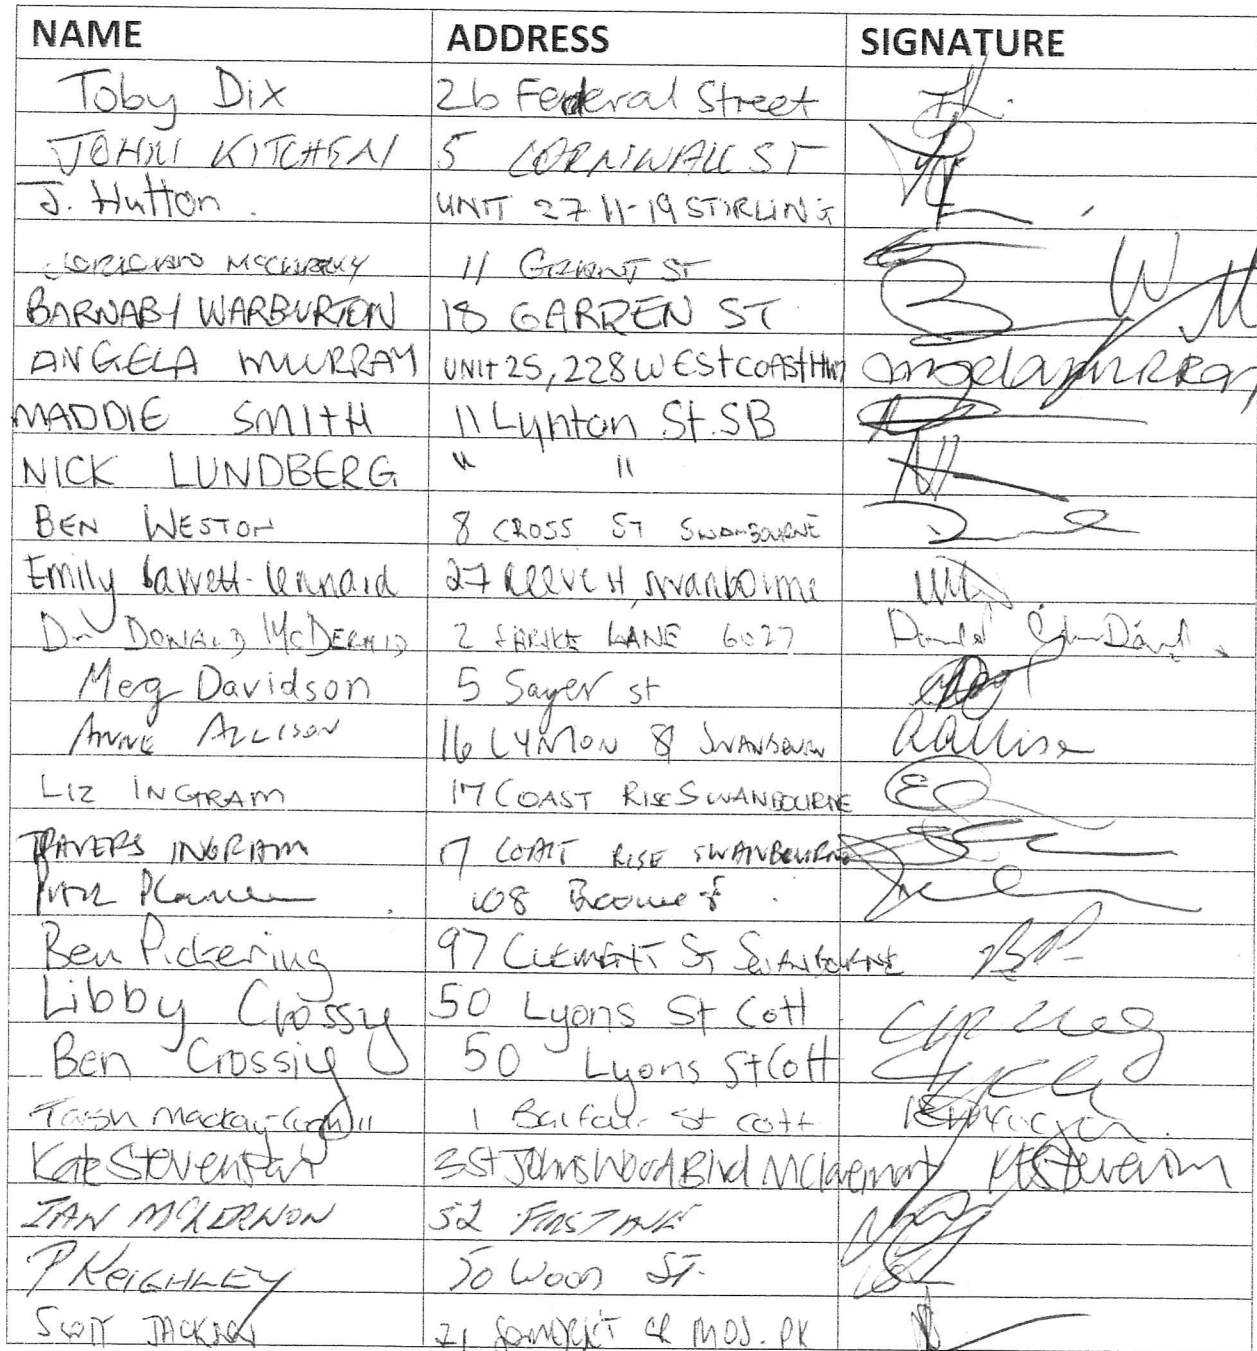 NAME ADDRESS SIGNATURE
Toby Dix 26 Federal Street
JOHN KITCHEN 5 CORNWALL ST
J. Hutton. UNIT 27 11-19 STIRLING
11 GRANT ST
BARNABY WARBURTON 18 GARDEN ST
ANGELA MURRAY UNIT 25, 228 WEST COAST HWY Angela MURRAY
MADDIE SMITH 11 Lynton St. SB
NICK LUNDBERG " "
BEN WESTON 8 CROSS ST SWANBOURNE
Emily Barrett-Lennard 27 Reeve st, Swanbourne
Dr DONALD McDERMID 2 SHRIKE LANE 6027
Meg Davidson 5 Sayer st
ANNE ALLISON 16 LYNTON St SWANBOURNE RAllison
LIZ INGRAM 17 COAST RISE SWANBOURNE
TRAVERS INGRAM 17 COAST RISE SWANBOURNE
108 Broome st.
Ben Pickering 97 CLEMENT ST SWANBOURNE BP
Libby Crossy 50 Lyons St Cott
Ben Crossiy 50 Lyons St Cott
Tash Mackay- 1 Balfour st cott
Kate Stevenson 3 St Johns Wood Blvd Mt Claremont KStevenson
IAN McKERNON 52 FIRST AVE
P KEIGHLEY 50 WOOD ST.
SCOTT JACKSON 21 SOMERSET CR MOS. PK